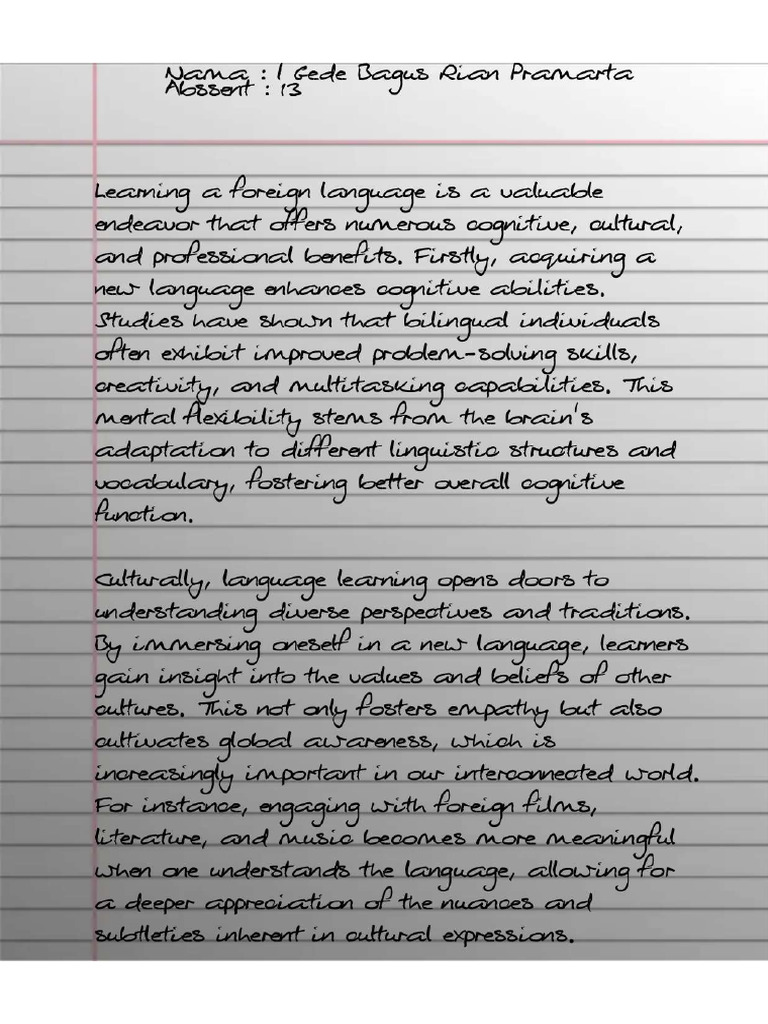 Nama : I Gede Bagus Rian Pramarta
Abssent : 13
Learning a foreign language is a valuable
endeavor that offers numerous cognitive, cultural,
and professional benefits. Firstly, acquiring a
new language enhances cognitive abilities.
Studies have shown that bilingual individuals
often exhibit improved problem-solving skills,
creativity, and multitasking capabilities. This
mental flexibility stems from the brain's
adaptation to different linguistic structures and
vocabulary, fostering better overall cognitive
function.
Culturally, language learning opens doors to
understanding diverse perspectives and traditions.
By immersing oneself in a new language, learners
gain insight into the values and beliefs of other
cultures. This not only fosters empathy but also
cultivates global awareness, which is
increasingly important in our interconnected world.
For instance, engaging with foreign films,
literature, and music becomes more meaningful
when one understands the language, allowing for
a deeper appreciation of the nuances and
subtleties inherent in cultural expressions.